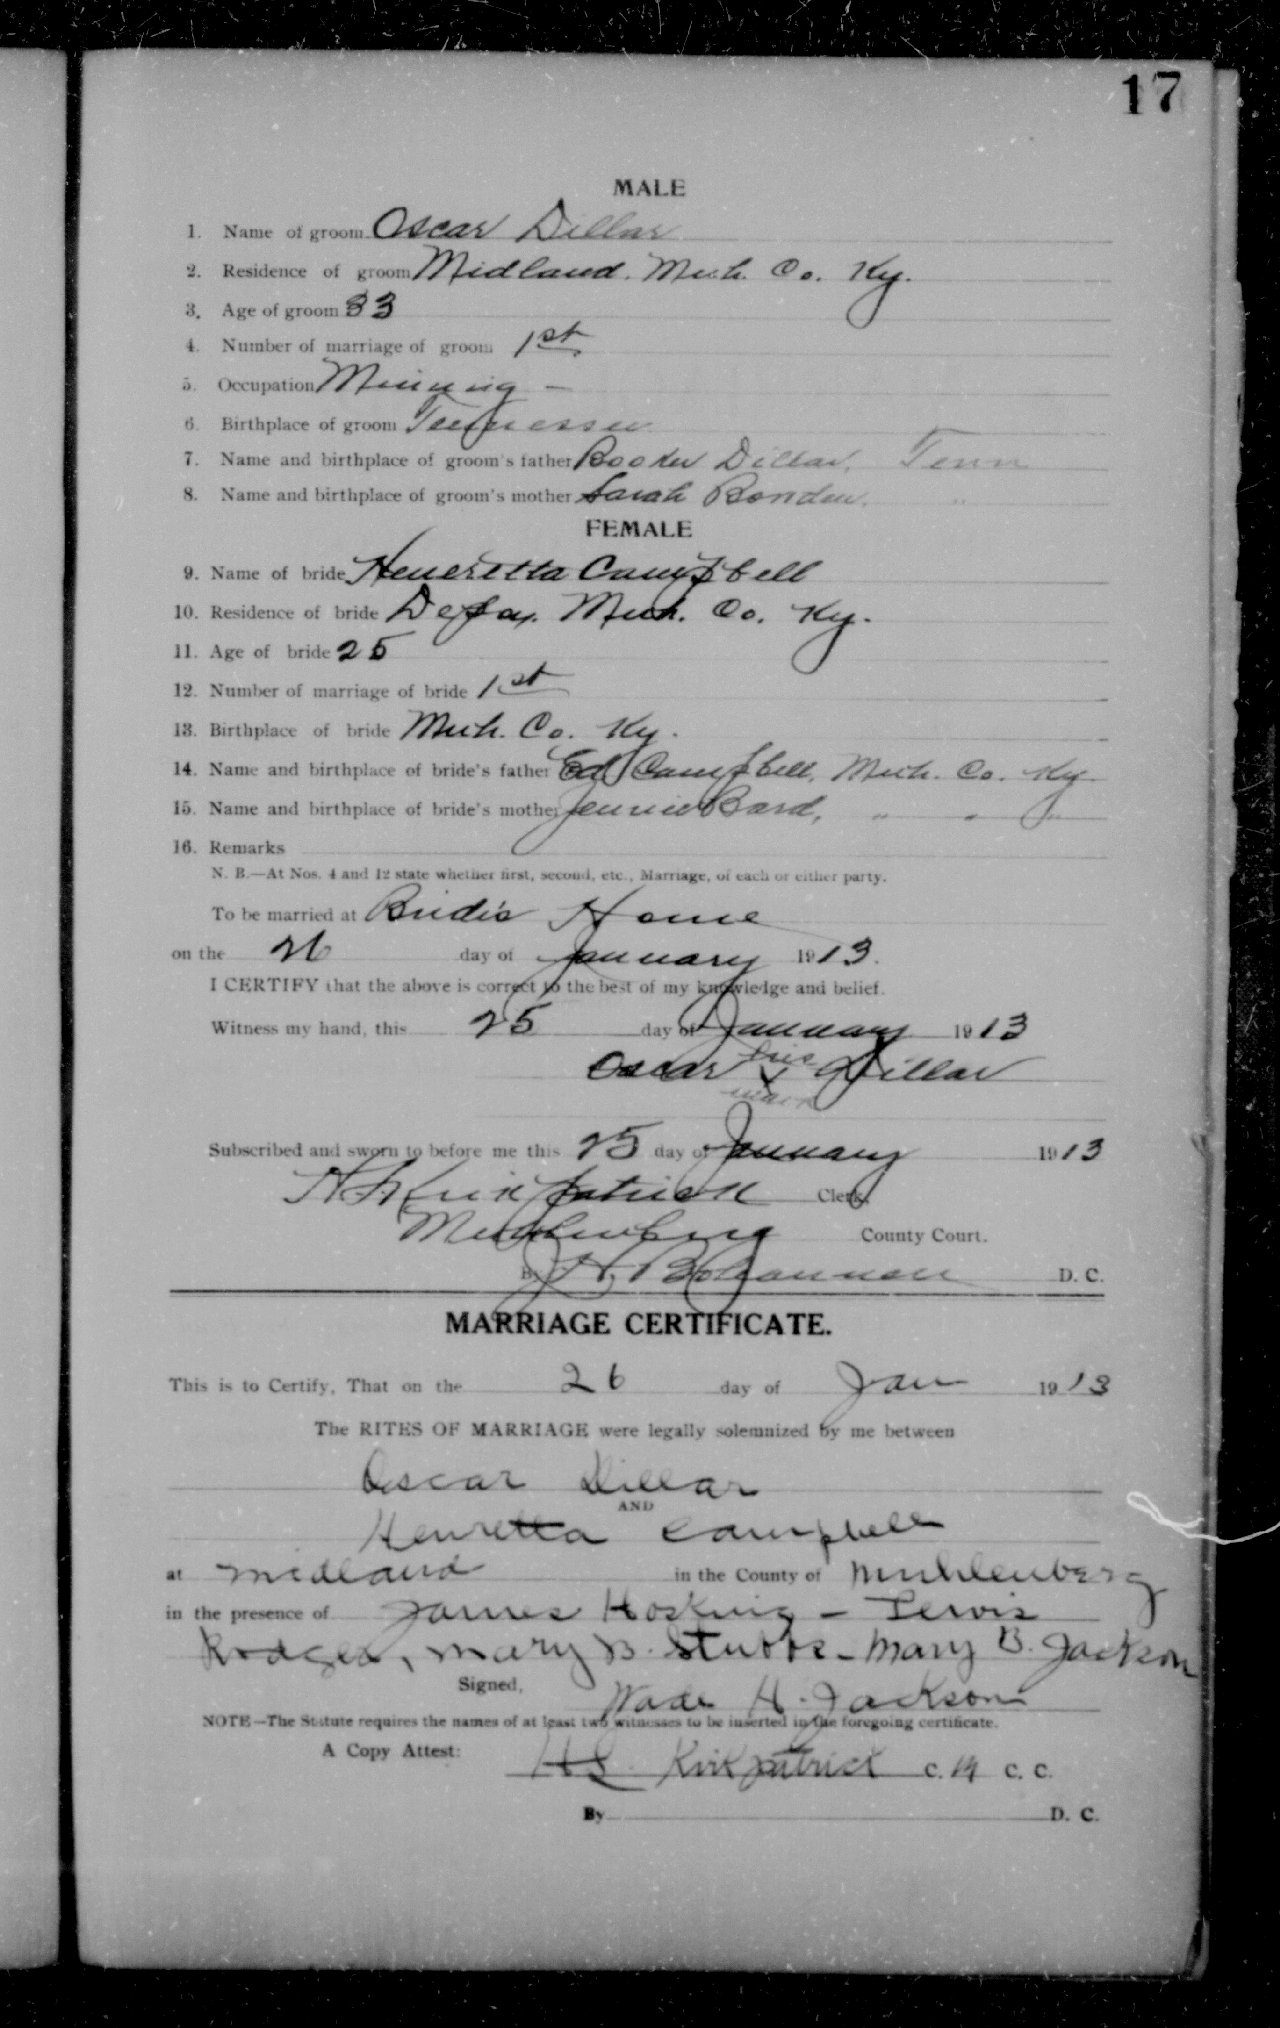 17
MALE
1. Name of groom Oscar Dillar
2. Residence of groom Midland, Muh. Co. Ky.
3. Age of groom 33
4. Number of marriage of groom 1st
5. Occupation Mining -
6. Birthplace of groom Tennessee
7. Name and birthplace of groom's father Booker Dillar, Tenn
8. Name and birthplace of groom's mother Sarah "
FEMALE
9. Name of bride Heneretta Campbell
10. Residence of bride Depoy. Muh. Co. Ky.
11. Age of bride 25
12. Number of marriage of bride 1st
13. Birthplace of bride Muh. Co. Ky.
14. Name and birthplace of bride's father Ed Campbell, Muh. Co. Ky
15. Name and birthplace of bride's mother Jennie Bard, " " "
16. Remarks
N. B.—At Nos. 4 and 12 state whether first, second, etc., Marriage, of each or either party.
To be married at Bride's Home
on the 26 day of January 1913.
I CERTIFY that the above is correct to the best of my knowledge and belief.
Witness my hand, this 25 day of January 1913
his
Oscar x Dillar
mark
Subscribed and sworn to before me this 25 day of January 1913
Kirkpatrick Clerk
Muhlenberg County Court.
By J. H. Bohannon D. C.
MARRIAGE CERTIFICATE.
This is to Certify, That on the 26 day of Jan 1913
The RITES OF MARRIAGE were legally solemnized by me between
Oscar Dillar
AND
Henretta Campbell
at Midland in the County of Muhlenberg
in the presence of James Hosking - Lewis
Rodges, Mary B. Stubbs - Mary B. Jackson
Signed, Wade H. Jackson
NOTE—The Statute requires the names of at least two witnesses to be inserted in the foregoing certificate.
A Copy Attest: Kirkpatrick C. M C. C.
By D. C.